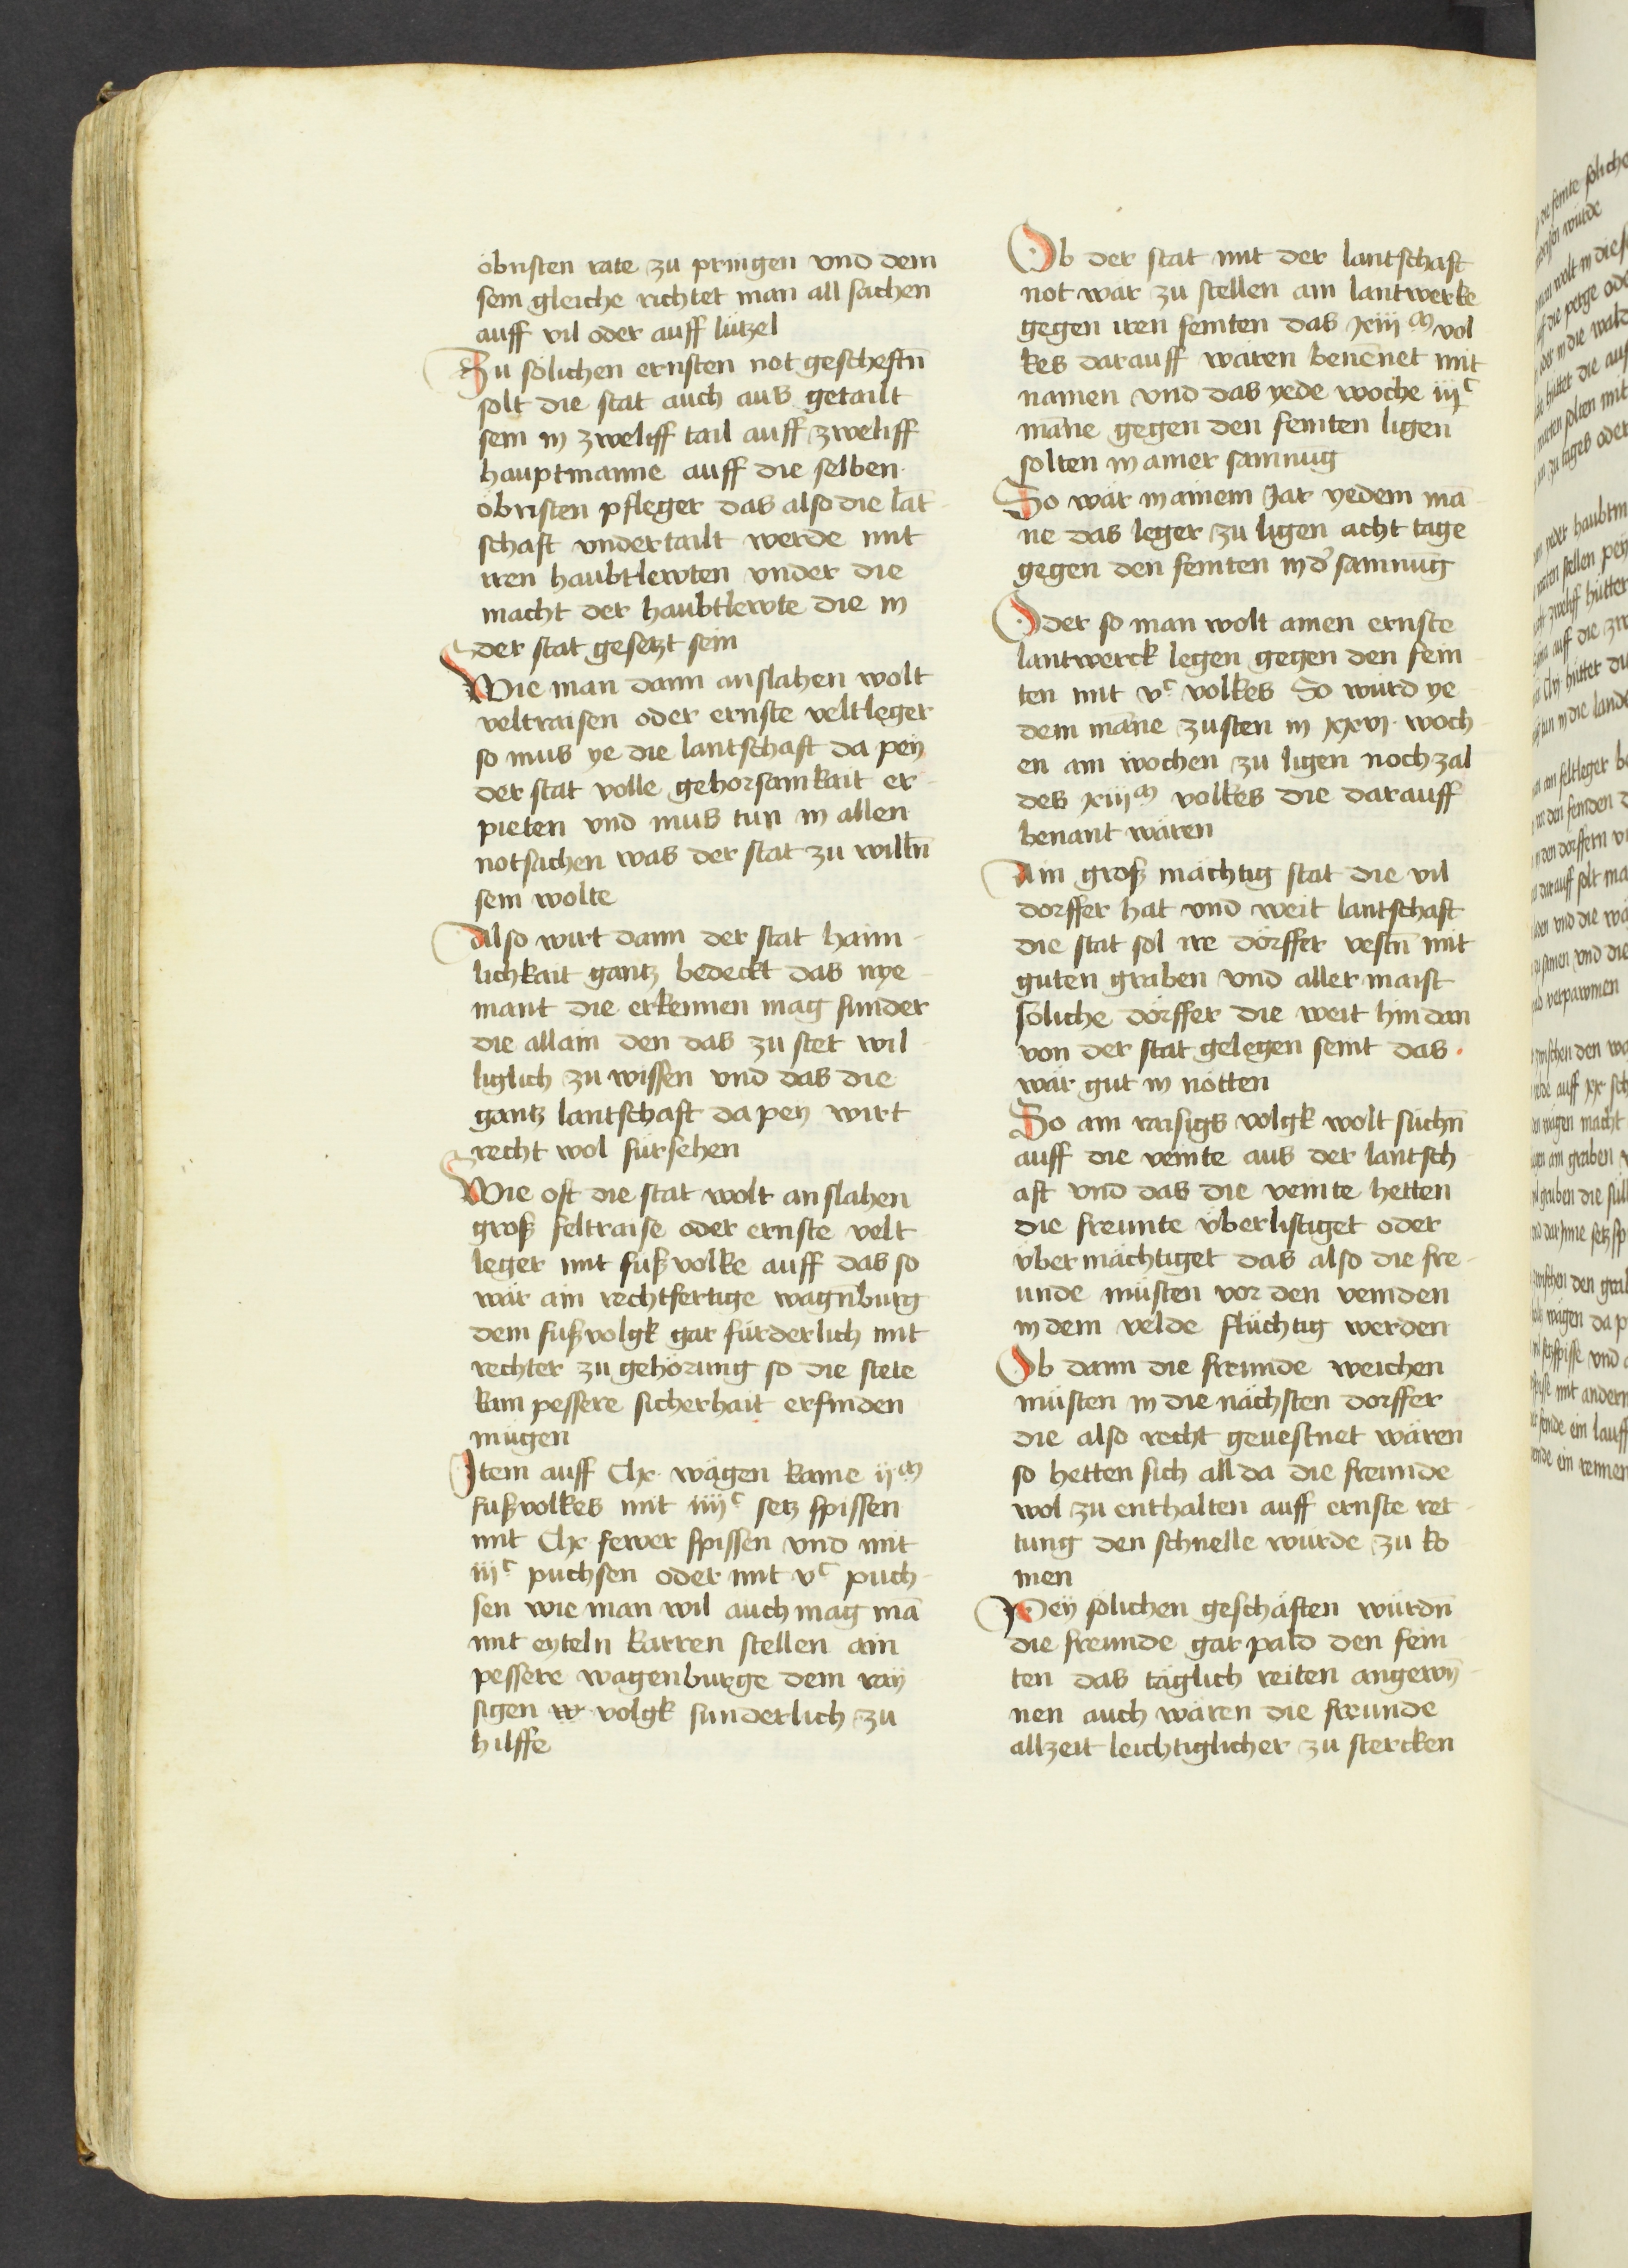 öbristen rate zu pringen vnd dem
sein gleiche richtet man all sachen
auff vil oder auff lützel
Zu sölichen ernsten not gescheftn̄
solt die stat auch aus getailt
sein in zweliff tail auff zweliff
hauptmanne auff die selben
öbristen pfleger das also die lāt
schaft vndertailt werde mit
iren haubtlewten vnder die
macht der haubtlewte die in
der stat gesetzt sein
Wie man dann anslahen wolt
veltraisen oder ernste veltleger
so mus ye die lantschaft da peÿ
der stat volle gehorsamkait er
pieten vnd mus tun in allen
notsachen was der stat zu willn̄
sein wolte
Also wirt dann der stat haim
lichkait gantz bedeckt das nye
mant die erkennen mag sunder
die allain den das zu stet wil
liglich zu wissen vnd das die
gantz lantschaft da pey wirt
recht wol fürsehen
Wie oft die stat wolt anslahen
groß feltraise oder ernste velt
leger mit fußvolke auff das so
wär ain rechtfertige wagn̄burg
dem fußvolgk gar fürderlich mit
rechter zu gehörung so die stete
kain pessere sicherhait erfinden
mügen
Item auff Clx wägen kame ijᵐ
fußvolkes mit iiijᶜ setz spissen
mit Clx fewer spissen vnd mit
iijᶜ puchsen oder mit vᶜ puch
sen wie man wil auch mag mā
mit eyteln karren stellen ain
pessere wagenburge dem raÿ
sigen volgk sunderlich zu
hilffe
Ob der stat mit der lantschaft
not wär zu stellen ain lantwerke
gegen iren feinten das xiijᵐ vol
kes darauff wären benen̄et mit
namen vnd das yede woche iijᶜ
man̄e gegen den feinten ligen
solten in ainer samnūg
So wär in ainem Jar yedem man
ne das leger zu ligen acht tage
gegen den feinten in dʾ samnūg
Oder so man wolt ainen ernste
lantwerck legen gegen den fein
ten mit vᶜ volkes So würd ye
dem man̄e zusten in xxvi woch
en ain wochen zu ligen noch zal
des xiijᵐ volkes die darauff
benant wären
Ain groß mächtig stat die vil
dorffer hat vnd weit lantschaft
die stat sol ire dörffer vestn̄ mit
guten graben vnd aller maist
söliche dörffer die weit hindan
von der stat gelegen seint das
wär gut in nötten
So ain raisigs volgk wolt suchn̄
auff die veinte aus der lantsch
aft vnd das die veinte hetten
die freunte vberlistiget oder
vbermächtiget das also die fre
unde müsten vor den veinden
in dem velde flüchtig werden
Ob dann die freunde weichen
müsten in die nächsten dorffer
die also recht geuestnet wären
so hetten sich allda die freunde
wol zu enthalten auff ernste ret
tung den schnelle würde zu ko
men
Peÿ sölichen geschäften würdn̄
die freunde gar pald den fein
ten das täglich reiten angewin̄
nen auch wären die freunde
allzeit leichtiglicher zu stercken